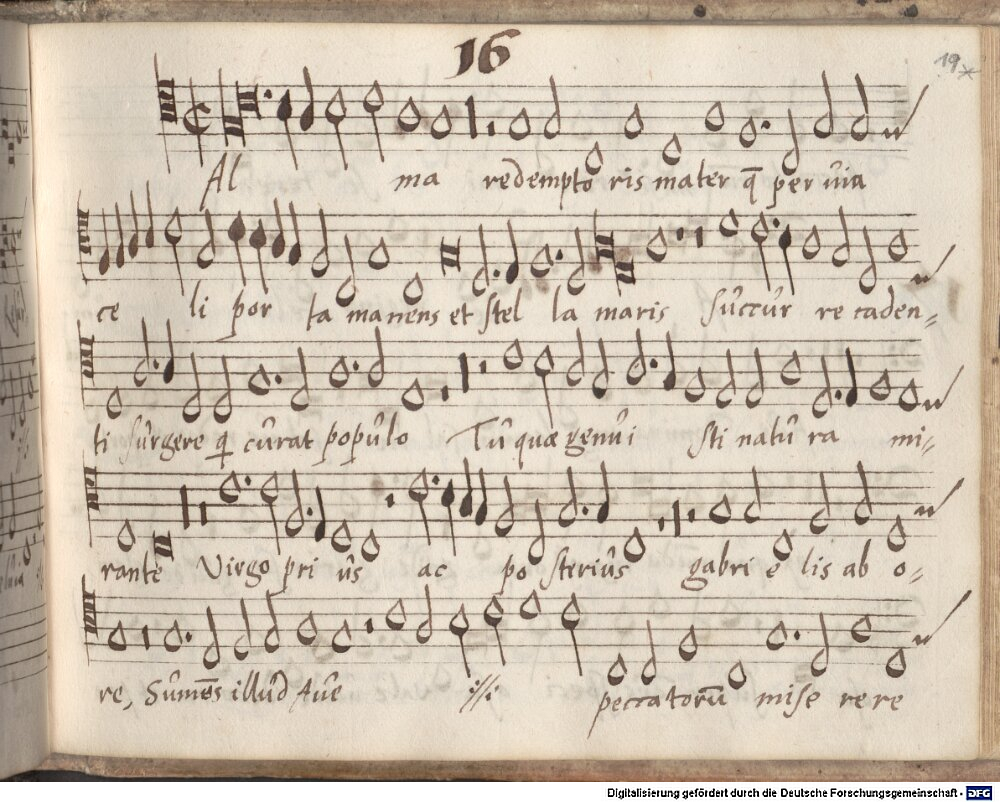 16
19
Al ma redempto ris mater q̄ per uia
ce li por ta manens et stel la maris sûccûr re caden-
ti sûrgere q̇ cûrat popûlo Tû quæ genûi sti natû ra mi-
rante Virgo pri ûs ac po steriûs gabri e lis ab o-
re, Sûmēs illûd Aûe :// peccatorū mise rere
Digitalisierung gefördert durch die Deutsche Forschungsgemeinschaft - DFG